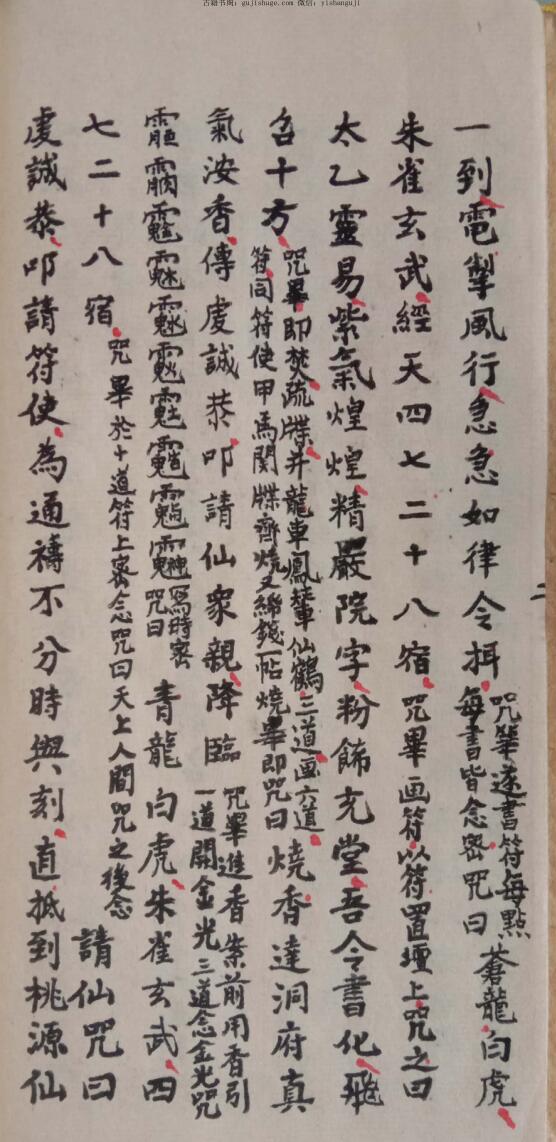 古籍书阁：gujishuge.com 微信：yishanguji
一到電掣風行急急如律令揖咒畢遂書符每點每書皆念密咒曰蒼龍白虎
朱雀玄武經天四七二十八宿咒畢画符以符置壇上咒之曰
太乙靈易紫氣煌煌精嚴院字粉飾充堂吾今書化飛
召十方咒畢即焚疏牒并龍車鳳輦仙鶴三道画六道符同符使甲馬関牒齊燒又錢一帖燒畢即咒曰燒香達洞府真
氣汝香傳虔誠恭叩請仙衆親降臨咒畢進香案前用香引一道開金光三道念金光咒
寫時密咒曰青龍白虎朱雀玄武四
七二十八宿咒畢於十道符上密念咒曰天上人間咒之後念請仙咒曰
虔誠恭叩請符使為通禱不分時與刻直抵到桃源仙
二